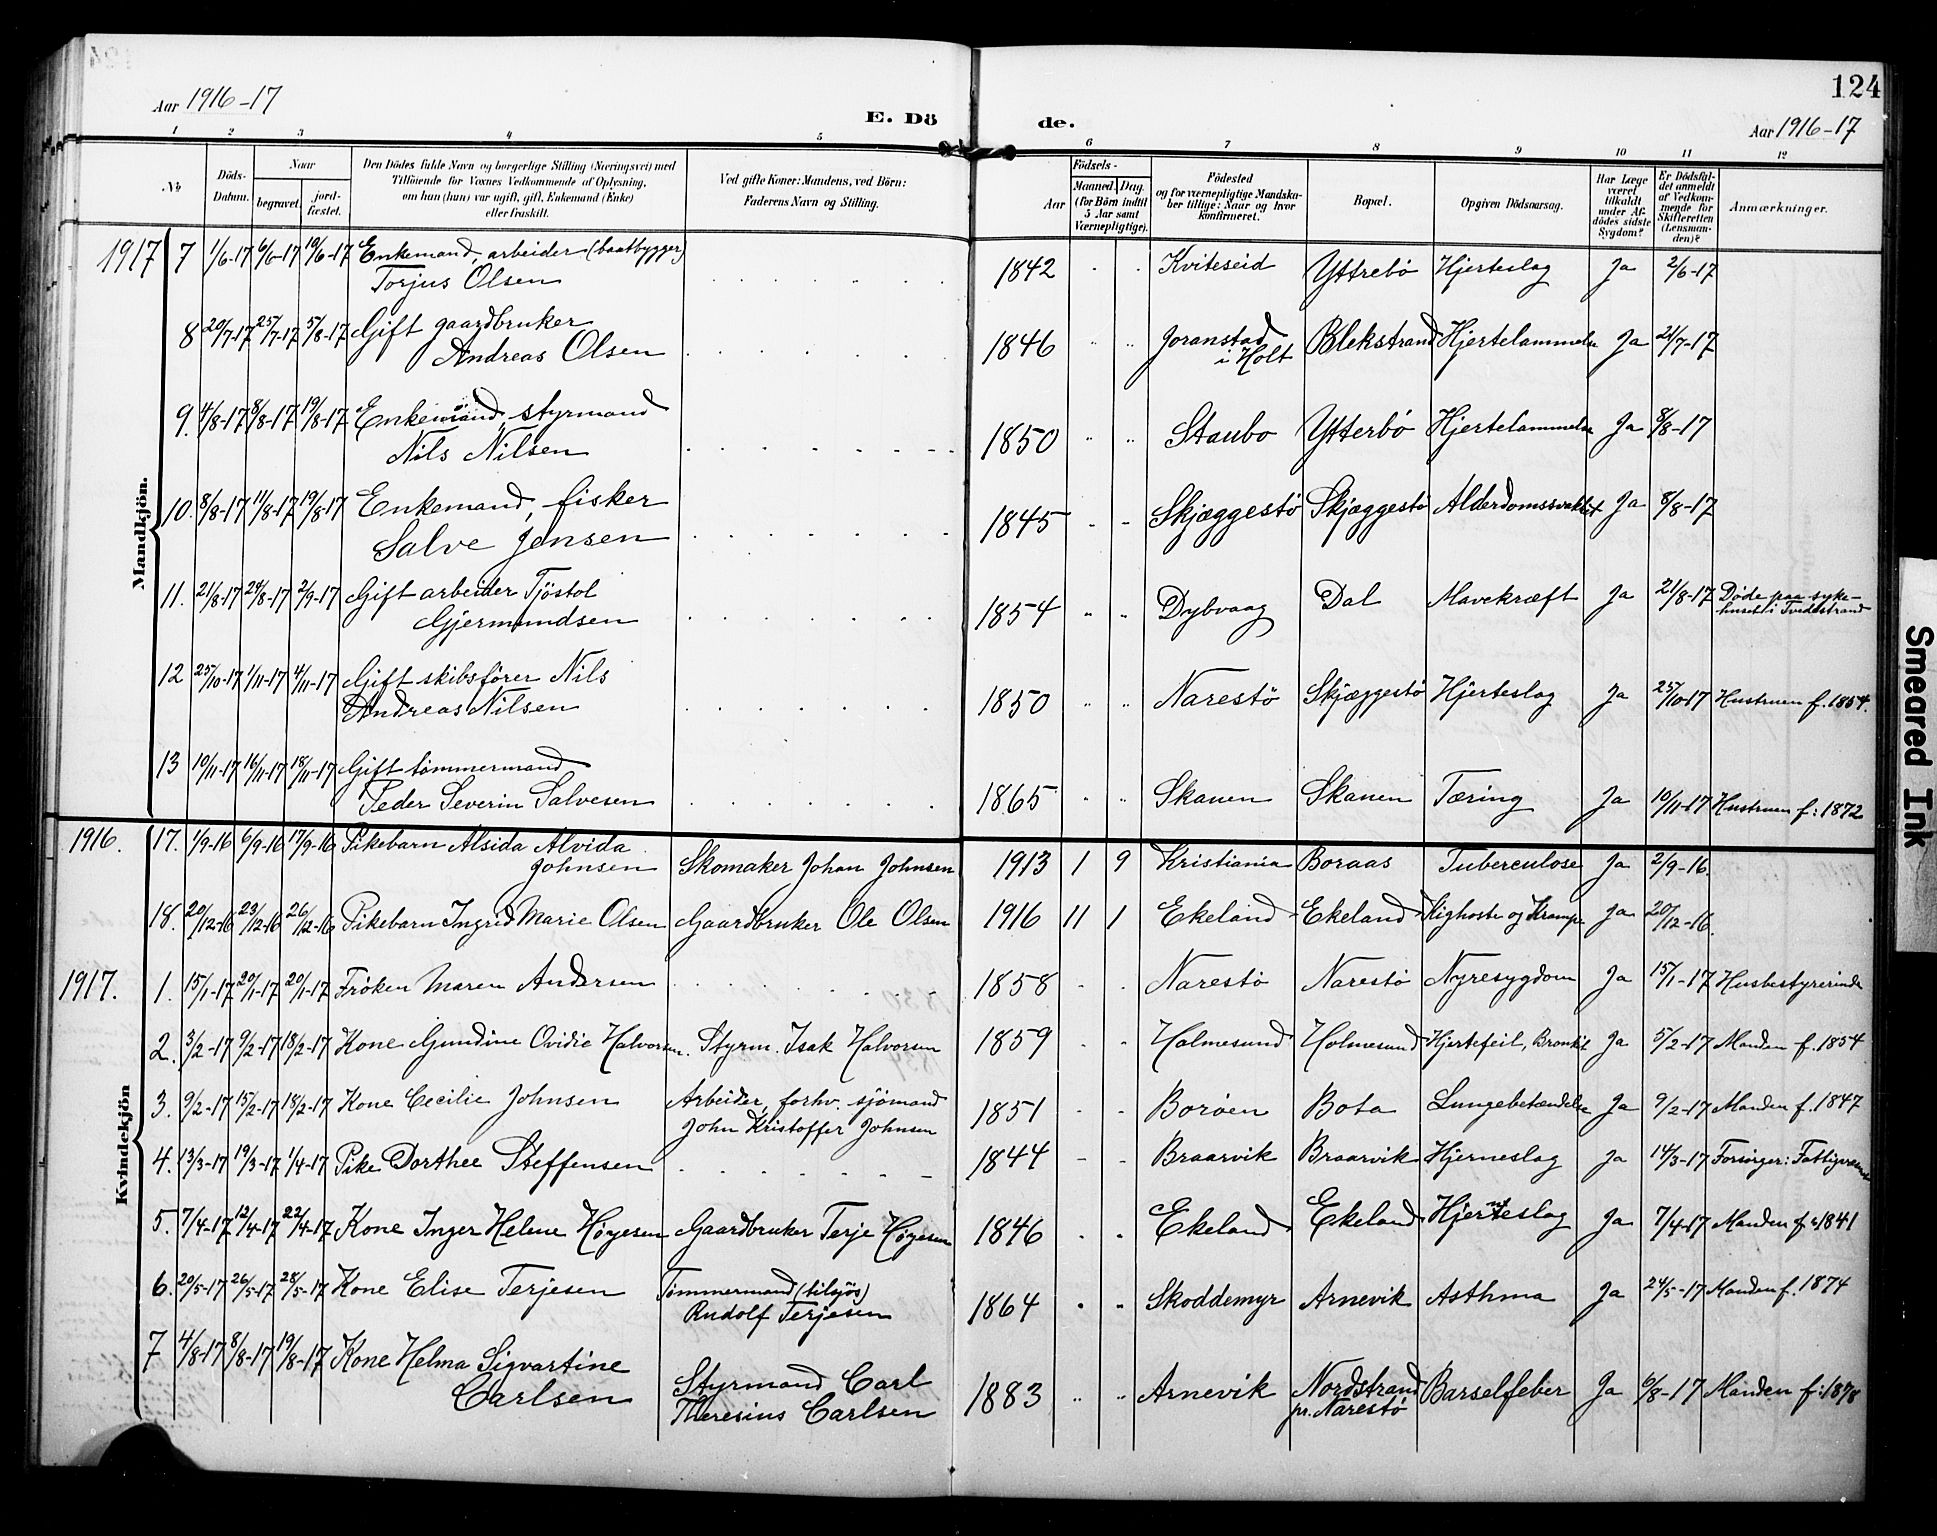 124
Aar 1916-17
E. Dö de.
Aar 1916-17
1 2 3 4 5 6 7 8 9 10 11 12
No
Döds-Datum.
Naar
begravet.
jord-fæstet.
Den Dödes fulde Navn og borgerlige Stilling (Næringsvei) med
Tilföiende for Voxnes Vedkommende af Oplysning,
om han (hun) var ugift, gift, Enkemand (Enke)
eller fraskilt.
Ved gifte Koner: Mandens, ved Börn:
Faderens Navn og Stilling.
Födsels-
Aar
Maaned. Dag.
(for Börn indtil
5 Aar samt
Værnepligtige).
Födested
og for værnepligtige Mandska-
ber tillige: Naar og hvor
konfirmeret.
Bopæl.
Opgiven Dödsaarsag.
Har Læge
været
tilkaldt
under Af-
dödes sidste
Sygdom?
Er Dödsfal-
det anmeldt
af Vedkom-
mende for
Skifteretten
(Lensman-
den)?
Anmærkninger.
Mandkjön.
1917 7 1/6-17 6/6-17 10/6-17 Enkemand, arbeider (baatbygger)
Torjus Olsen 1842 Kviteseid Yttrebö Hjerteslag Ja 2/6-17
8 20/7-17 25/7-17 5/8-17 Gift gaardbruker
Andreas Olsen 1846 Joranstad
i Holt Blekstrand Hjertelammelse Ja 21/7-17
9. 4/8-17 8/8-17 19/8-17 Enkemand, styrmand
Nils Nilsen 1850 Staubo Ytterbö Hjertelammelse Ja 8/8-17
10. 8/8-17 11/8-17 19/8-17 Enkemand, fisker
Salve Jensen 1845 Skjæggestö Skjæggestö Alderdomssvakhet Ja 8/8-17
11. 21/8-17 24/8-17 2/9-17 Gift arbeider Tjöstol
Gjermundsen 1854 Dybvaag Dal Mavekræft Ja 21/8-17 Døde paa syke-
huset i Tvedestrand
12 25/10-17 1/11-17 4/11-17 Gift skibsförer Nils
Andreas Nilsen 1850 Narestö Skjæggestö Hjerteslag Ja 25/10-17 Hustruen f. 1854.
13 10/11-17 16/11-17 18/11-17 Gift tömmermand
Peder Severin Salvesen 1865 Skanen Skanen Tæring Ja 10/11-17 Hustruen f: 1872
Kvindekjön
1916. 17. 1/9-16 6/9-16 17/9-16 Pikebarn Alsida Alvida
Johnsen Skomaker Johan Johnsen 1913 1 9 Kristiania Boraas Tuberculose Ja 2/9-16.
18. 20/12-16 23/12-16 26/12-16 Pikebarn Ingrid Marie Olsen Gaardbruker Ole Olsen 1916 11 1 Ekeland Ekeland Kighoste og Krampe Ja 20/12-16.
1917. 1. 15/1-17 20/1-17 20/1-17 Fröken Maren Andersen 1858 Narestö Narestö Nyresygdom Ja 15/1-17 Husbestyrerinde
2. 3/2-17 9/2-17 18/2-17 Kone Gundine Ovidie Halvorsen. Styrm. Isak Halvorsen 1859 Holmesund Holmesund Hjertefeil, Bronkit Ja 5/2-17 Manden f. 1854
3. 9/2-17 15/2-17 18/2-17 Kone Cecilie Johnsen Arbeider, forhv. sjömand
John Kristoffer Johnsen 1851 Boröen Bota Lungebetændelse Ja 9/2-17 Manden f. 1847
4. 13/3-17 19/3-17 1/4-17 Pike Dorthee Steffensen 1844 Braarvik Braarvik Hjerneslag Ja 14/3-17 Forsörger: Fattigvæsenet
5. 7/4-17 12/4-17 22/4-17 Kone Inger Helene Höyesen Gaardbruker Terje Höyesen 1846 Ekeland Ekeland Hjerteslag Ja 7/4-17 Manden f: 1841
6. 20/5-17 26/5-17 28/5-17 Kone Elise Terjesen Tömmermand (tilsjös)
Rudolf Terjesen 1864 Skoddemyr Arnevik Asthma Ja 24/5-17 Manden f. 1874
7 4/8-17 8/8-17 19/8-17 Kone Helma Sigvartine
Carlsen Styrmand Carl
Theresius Carlsen 1883 Arnevik Nordstrand
pr. Narestö Barselfeber Ja 6/8-17 Manden f: 1878
Smeared Ink